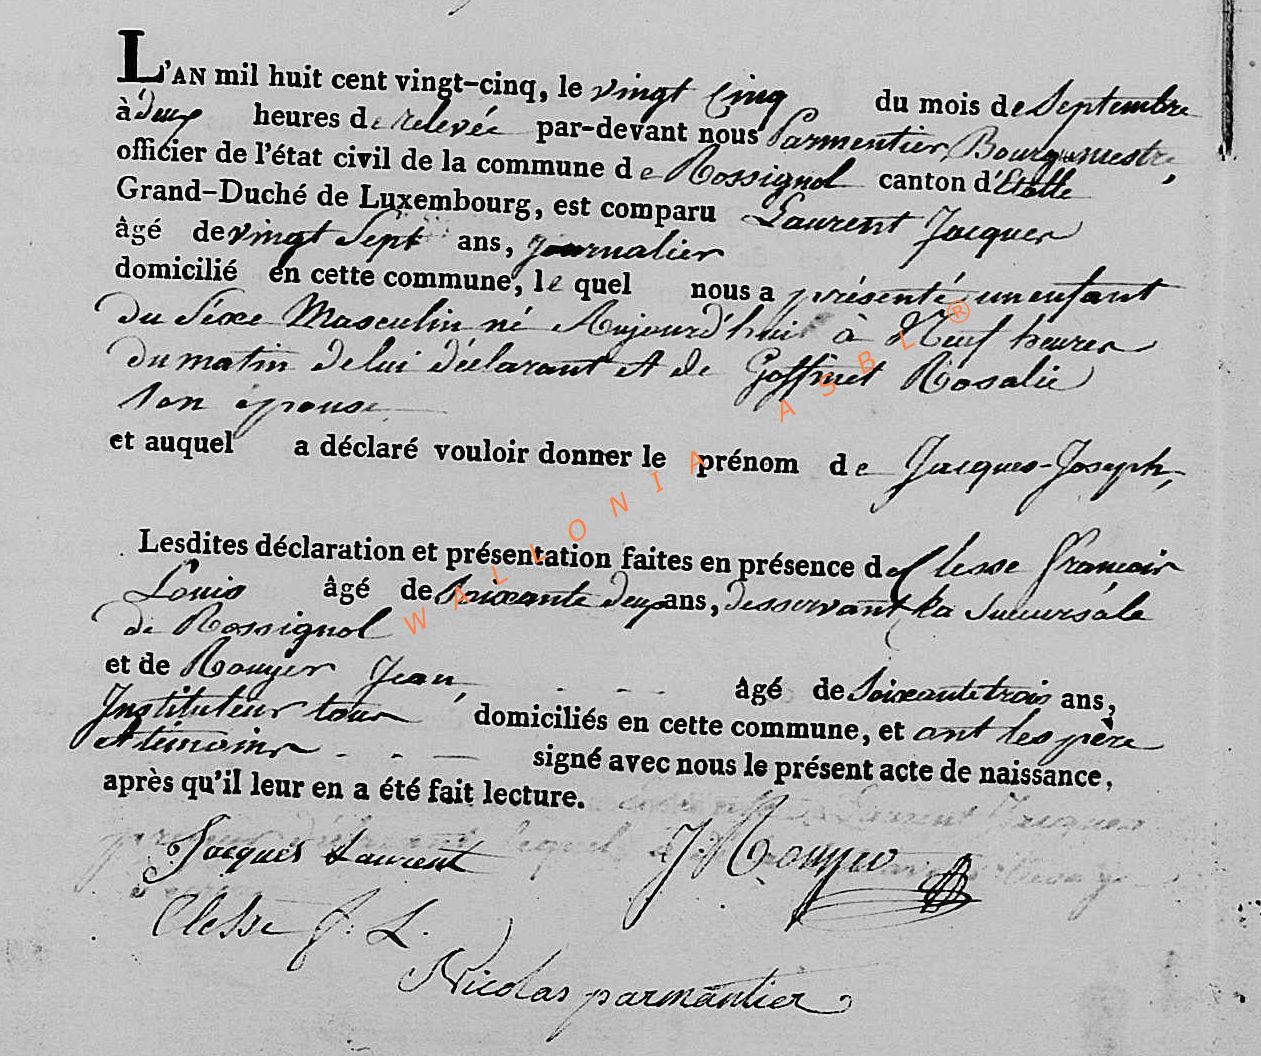 L'AN mil huit cent vingt-cinq, le vingt Cinq du mois de Septembre
à deux heures de relevée par-devant nous Parmentier, Bourguemestre,
officier de l'état civil de la commune de Rossignol canton d'Etalle
Grand-Duché de Luxembourg, est comparu Laurent Jacques
âgé de vingt Sept ans, journalier
domicilié en cette commune, le quel nous a présenté un enfant
du Séxe Masculin né Aujourd'hui à Neuf heures
du matin de lui déclarant et de Goffinet Rosalie
son épouse
et auquel a déclaré vouloir donner le prénom de Jacques-Joseph,
Lesdites déclaration et présentation faites en présence de Clesse françois
Louis âgé de Soixante deux ans, desservant la Sucursale
de Rossignol
et de Rouyer Jean, âgé de Soixante trois ans,
Instituteur tous domiciliés en cette commune, et ont les père
et témoins signé avec nous le présent acte de naissance,
après qu'il leur en a été fait lecture.
Jacques Laurent J. Rouyer
Clesse f. L.
Nicolas parmentier
WALLONIA ASBL ®